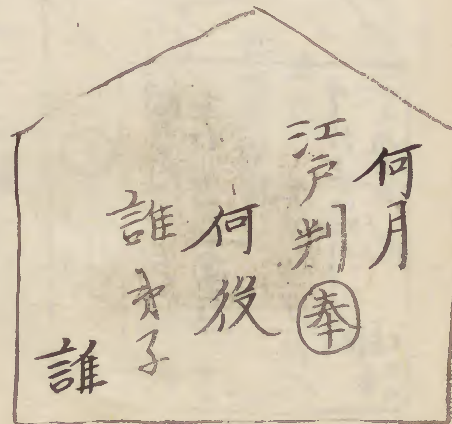 何月
江戸判 奉
何役
誰 子
誰